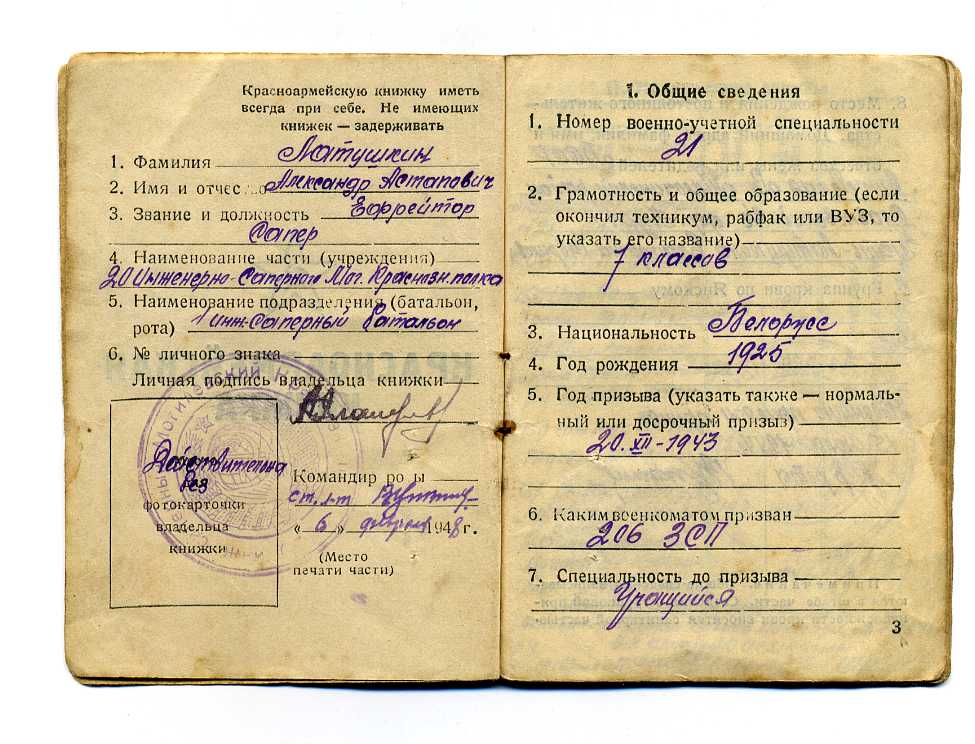 Красноармейскую книжку иметь
всегда при себе. Не имеющих
книжек — задерживать
1. Фамилия Латушкин
2. Имя и отчество Александр Астапович
3. Звание и должность Ефрейтор
Сапер
4. Наименование части (учреждения)
20 Инженерно-Саперного Мот. Краснозн. полка
5. Наименование подразделения (батальон,
рота) 1 инж-Саперный батальон
6. № личного знака
Личная подпись владельца книжки
Действительна
без
фотокарточки
владельца
книжки
Командир ро ы
ст. л-т
« 6 » 1948 г.
(Место
печати части)
1. Общие сведения
1. Номер военно-учетной специальности
21
2. Грамотность и общее образование (если
окончил техникум, рабфак или ВУЗ, то
указать его название)
7 классов
3. Национальность Белорусс
4. Год рождения 1925
5. Год призыва (указать также — нормаль-
ный или досрочный призыв)
20. XII - 1943
6. Каким военкоматом призван
206 ЗСП
7. Специальность до призыва
Учащийся
3